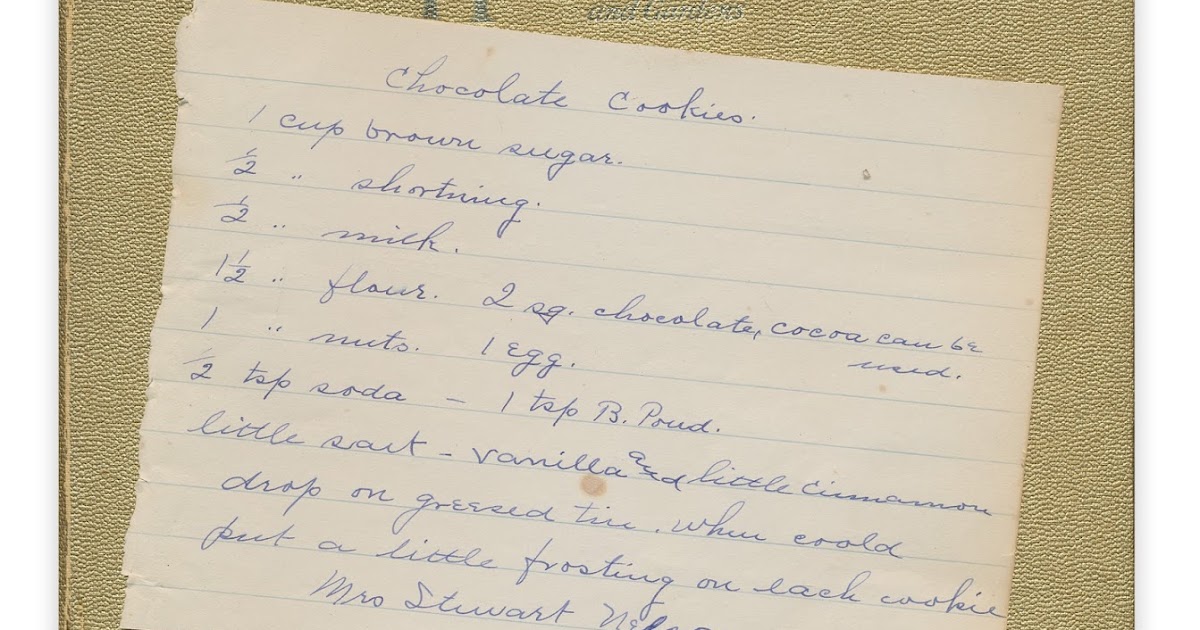 and Gardens
Chocolate Cookies.
1 cup brown sugar.
½ " shortning.
½ " milk.
1½ " flour. 2 sq. chocolate, cocoa can be
used.
1 " nuts. 1 Egg.
½ tsp soda – 1 tsp B. Powd.
little salt – vanilla and little cinnamon
drop on greesed tin. When coold
put a little frosting on each cookie
Mrs Stewart